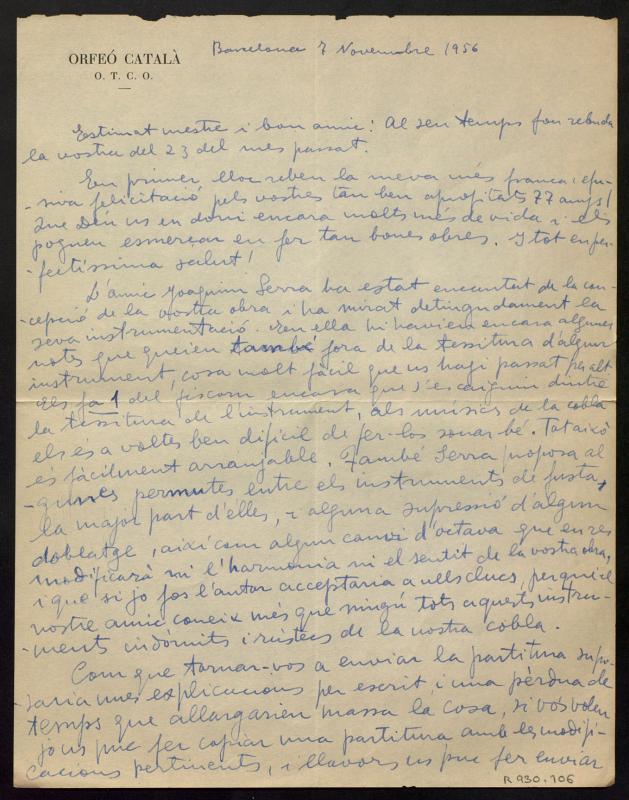 ORFEÓ CATALÀ
O. T. C. O.
Barcelona 7 Novembre 1956
Estimat mestre i bon amic: Al seu temps fou rebuda
la vostra del 23 del mes passat.
En primer lloc reben la meva més franca i efu-
-siva felicitació pels vostres tan ben aprofitats 77 anys!
Que Déu us en doni encara molts més de vida i els
pogueu esmerçar en fer tan bones obres. I tot en per-
-fectíssima salut!
L'amic Joaquim Serra ha estat encantat de la con-
-cepció de la vostra obra i ha mirat detingudament la
seva instrumentació. En ella hi havien encara algunes
notes que queien també fora de la tessitura d'algun
instrument, cosa molt fàcil que us hagi passat per alt
Els fa 1 del fiscorn encara que s'escaiguin dintre
la tessitura de l'instrument, als músics de la cobla
els és a voltes ben difícil de fer-los sonar bé. Tot això
és fàcilment arranjable. També Serra proposa al
-gunes permutes entre els instruments de fusta,
la major part d'elles, i alguna supressió d'algun
doblatge, així com algun canvi d'octava que en res
modificarà ni l'harmonia ni el sentit de la vostra obra,
i que si jo fos l'autor acceptaria a ulls clucs, perquè el
nostre amic coneix més que ningú tots aquests instru-
-ments indòmits i rústecs de la nostra cobla.
Com que tornar-vos a enviar la partitura supo-
-saria unes explicacions per escrit, i una pèrdua de
temps que allargarien massa la cosa, si vos voleu
jo us puc fer copiar una partitura amb les modifi-
cacions pertinents, i llavors us puc fer enviar
R 930.106